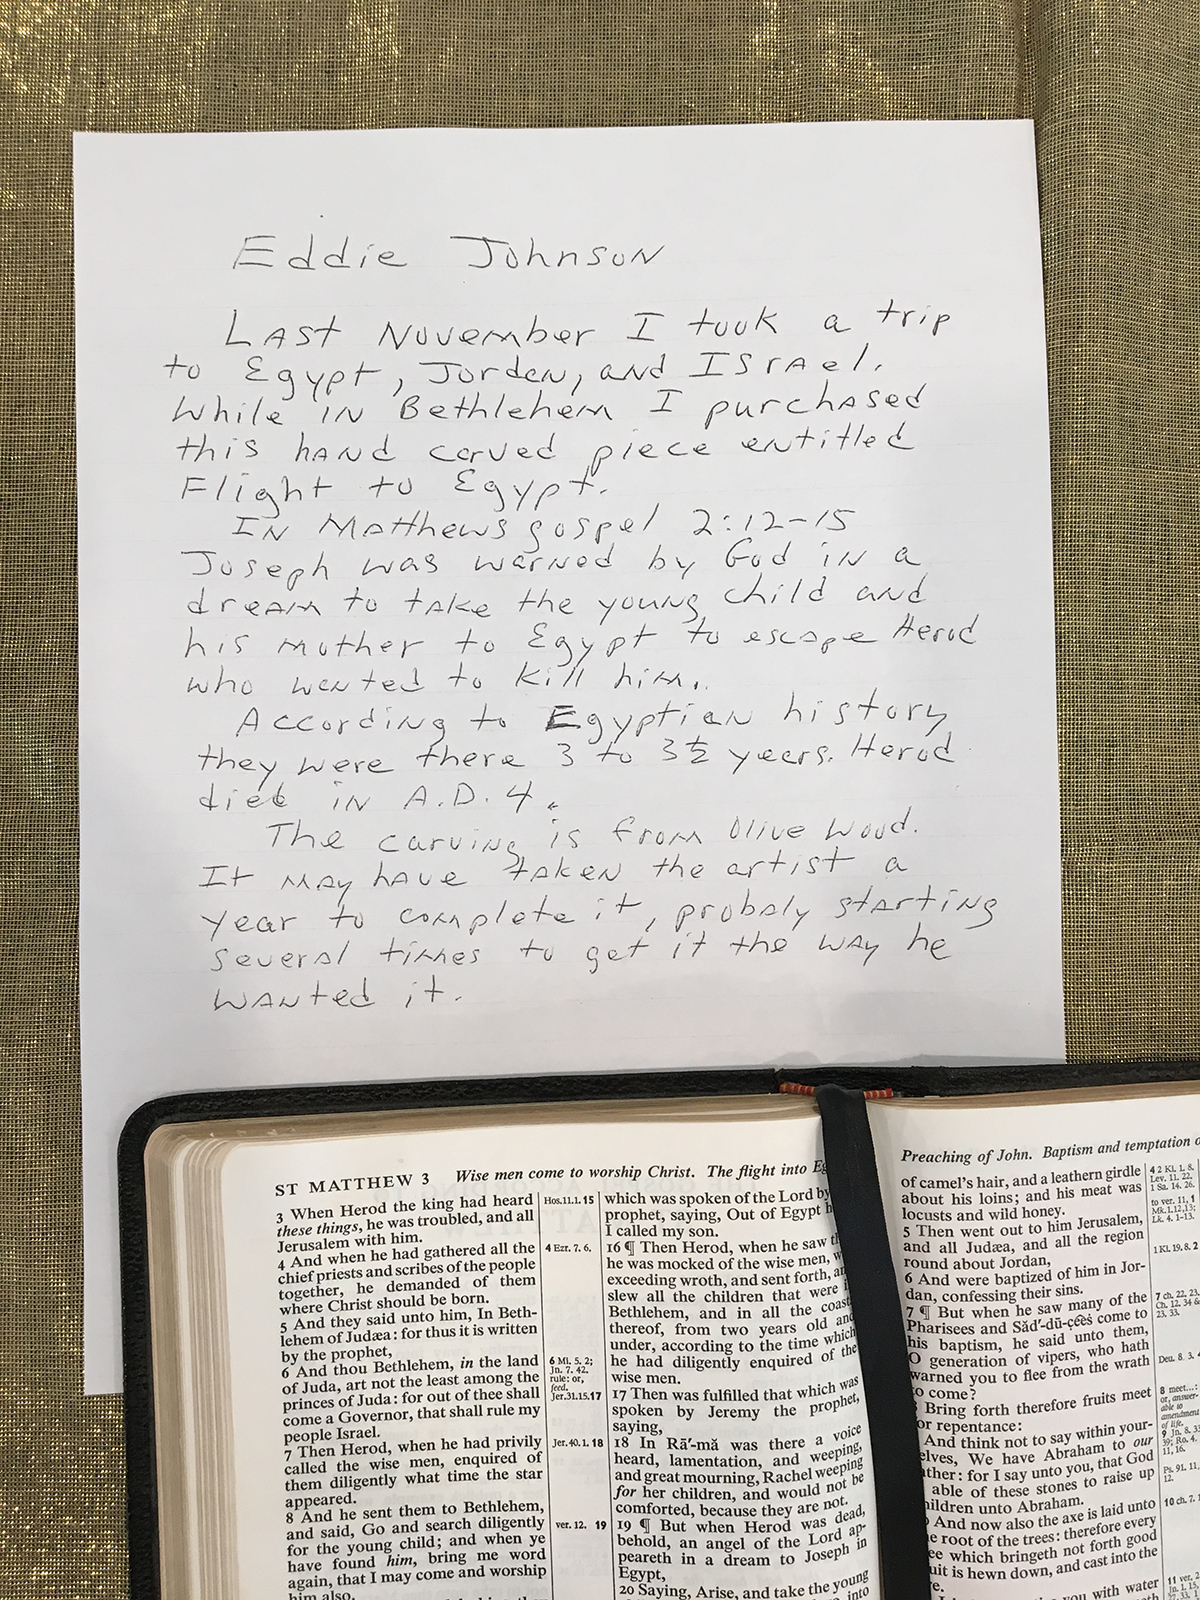 Eddie Johnson
Last November I took a trip
to Egypt, Jorden, and Israel.
While in Bethlehem I purchased
this hand carved piece entitled
Flight to Egypt.
In Matthews gospel 2:12-15
Joseph was warned by God in a
dream to take the young child and
his mother to Egypt to escape Herod
who wanted to kill him.
According to Egyptian history
they were there 3 to 3½ years. Herod
died in A.D. 4.
The carving is from Olive Wood.
It may have taken the artist a
year to complete it, probaly starting
several times to get it the way he
wanted it.
ST MATTHEW 3 Wise men come to worship Christ. The flight into Eg
3 When Herod the king had heard
these things, he was troubled, and all
Jerusalem with him.
4 And when he had gathered all the
chief priests and scribes of the people
together, he demanded of them
where Christ should be born.
5 And they said unto him, In Beth-
lehem of Judæa: for thus it is written
by the prophet,
6 And thou Bethlehem, in the land
of Juda, art not the least among the
princes of Juda: for out of thee shall
come a Governor, that shall rule my
people Israel.
7 Then Herod, when he had privily
called the wise men, enquired of
them diligently what time the star
appeared.
8 And he sent them to Bethlehem,
and said, Go and search diligently
for the young child; and when ye
have found him, bring me word
again, that I may come and worship
him also.
Hos.11.1. 15
4 Ezr. 7. 6.
6 Mi. 5. 2;
Jn. 7. 42.
rule: or,
feed.
Jer.31.15.17
Jer. 40. 1. 18
ver. 12. 19
which was spoken of the Lord by
prophet, saying, Out of Egypt h
I called my son.
16 ¶ Then Herod, when he saw th
he was mocked of the wise men, w
exceeding wroth, and sent forth, an
slew all the children that were i
Bethlehem, and in all the coast
thereof, from two years old and
under, according to the time which
he had diligently enquired of the
wise men.
17 Then was fulfilled that which was
spoken by Jeremy the prophet,
saying,
18 In Rā′-mă was there a voice
heard, lamentation, and weeping,
and great mourning, Rachel weeping
for her children, and would not be
comforted, because they are not.
19 ¶ But when Herod was dead,
behold, an angel of the Lord ap-
peareth in a dream to Joseph in
Egypt,
20 Saying, Arise, and take the young
into
Preaching of John. Baptism and temptation o
of camel's hair, and a leathern girdle
about his loins; and his meat was
locusts and wild honey.
5 Then went out to him Jerusalem,
and all Judæa, and all the region
round about Jordan,
6 And were baptized of him in Jor-
dan, confessing their sins.
7 ¶ But when he saw many of the
Pharisees and Săd′-dū-çēes come to
his baptism, he said unto them,
O generation of vipers, who hath
warned you to flee from the wrath
to come?
Bring forth therefore fruits meet
for repentance:
And think not to say within your-
elves, We have Abraham to our
ather: for I say unto you, that God
able of these stones to raise up
hildren unto Abraham.
And now also the axe is laid unto
e root of the trees: therefore every
ee which bringeth not forth good
uit is hewn down, and cast into the
re.
you with water
4 2 Ki. 1. 8.
Lev. 11. 22.
1 Sa. 14. 26.
to ver. 11, 1
Mk.1.12,13;
Lk. 4. 1-13.
1 Ki. 19. 8. 2
7 ch. 22, 23.
Ch. 12. 34 &
23. 33.
Deu. 8. 3. 4
8 meet...:
or, answer-
able to
amendment
of life.
9 Jn. 8. 33
39; Ro. 4.
11, 16.
Ps. 91. 11,
12.
10 ch. 7. 1
11 ver. 2
Jn. 1. 15,